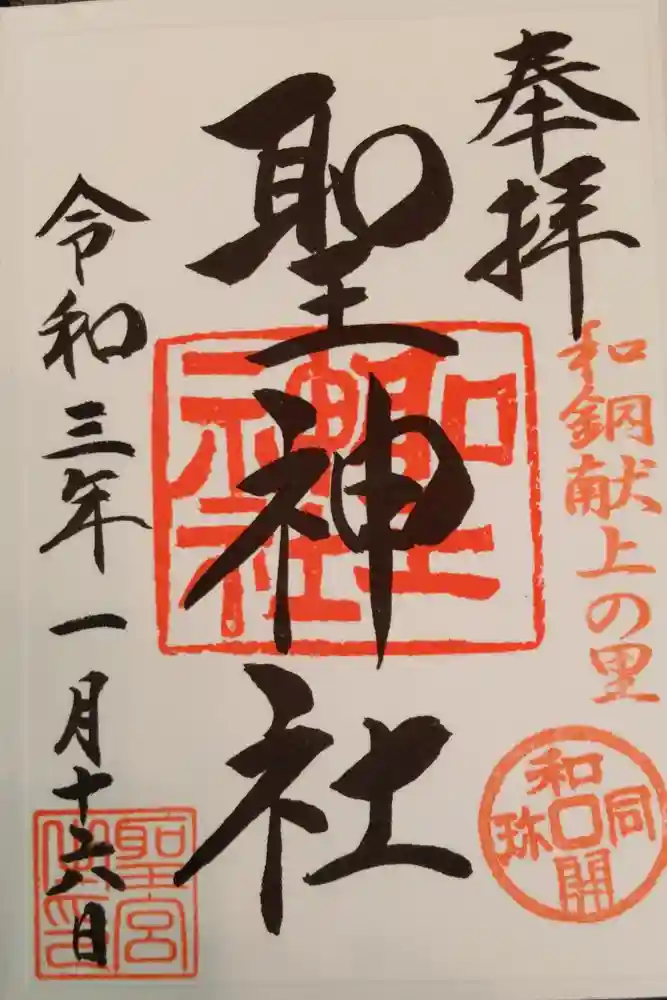 奉拝
和銅献上の里
和同開珎
聖神社
聖神社
令和三年一月十六日
聖宮